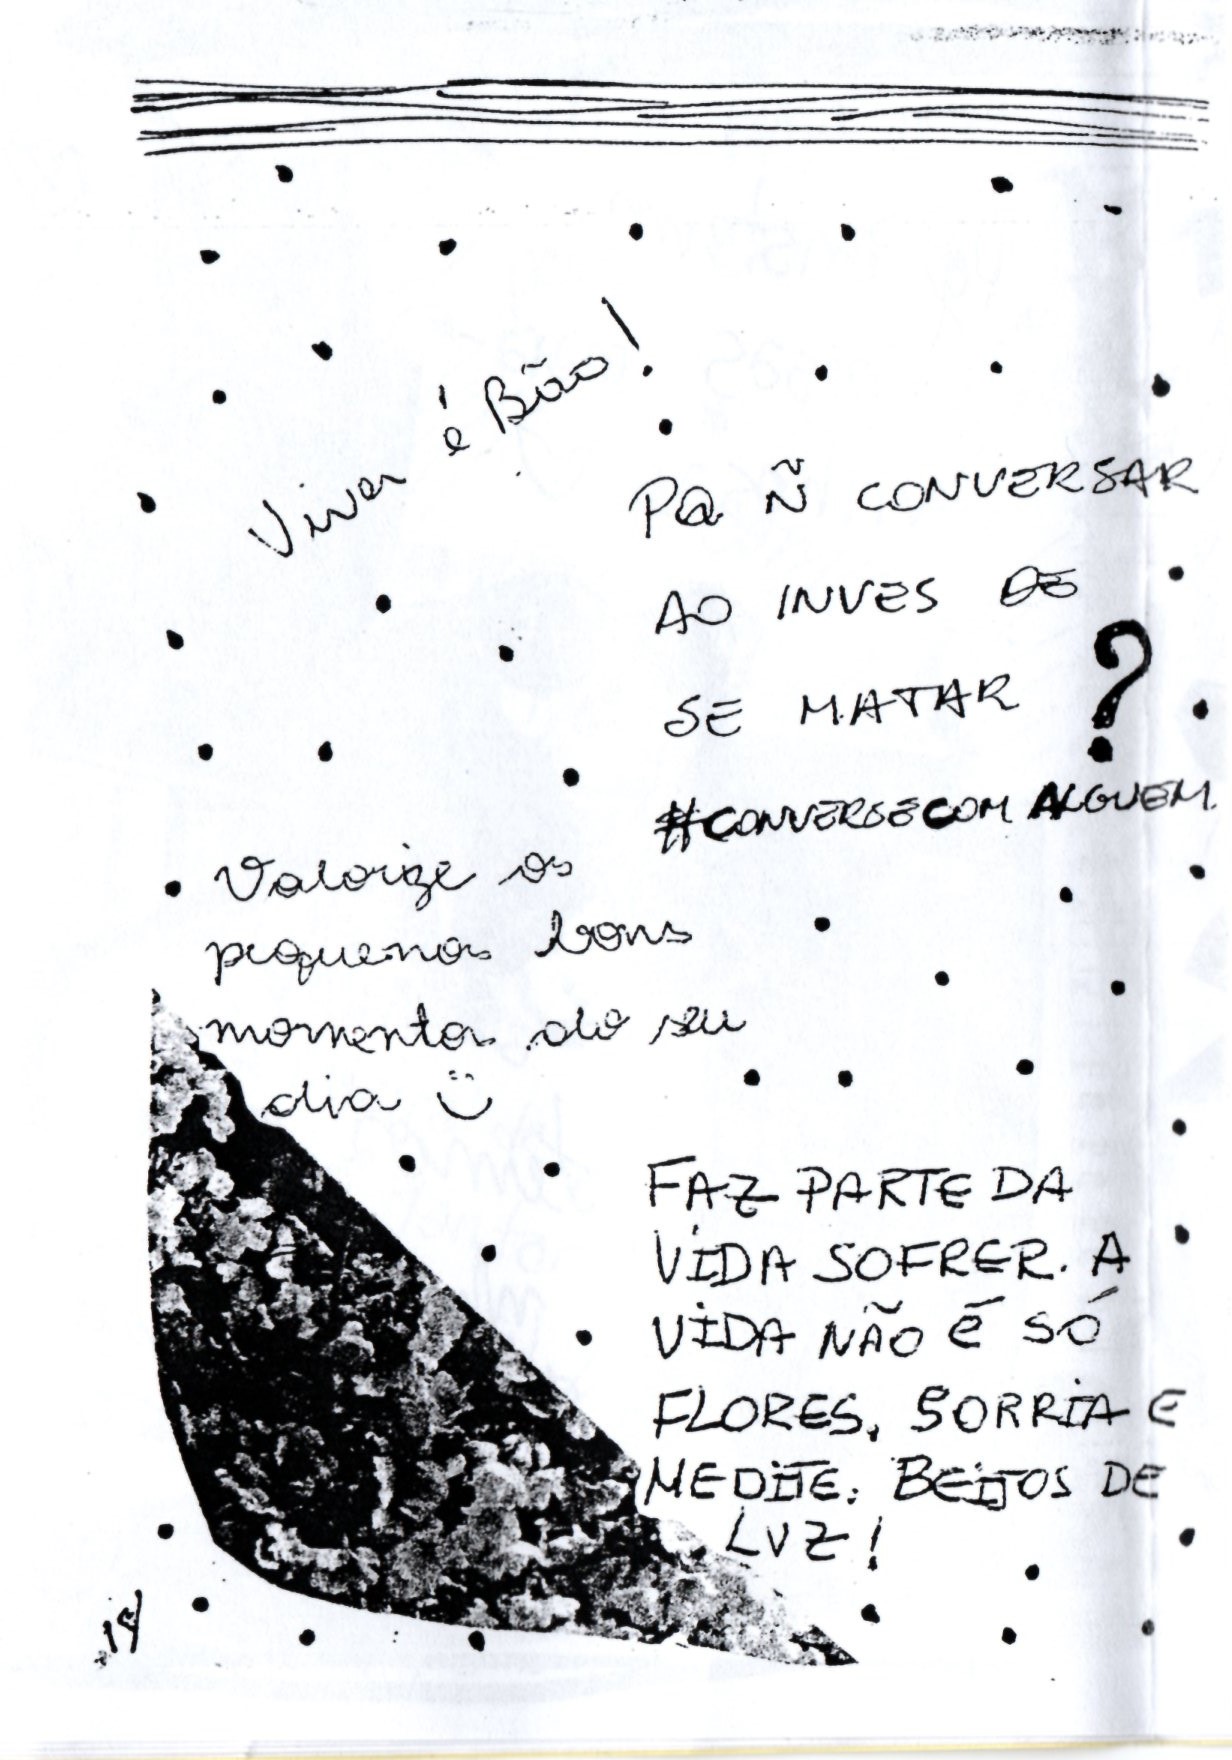 Viver é Bão!
PQ Ñ CONVERSAR
AO INVES DE
SE MATAR ?
#CONVERSECOMALGUEM.
Valorize os
pequenos bons
momentos do seu
dia
FAZ PARTE DA
VIDA SOFRER. A
VIDA NÃO É SÓ
FLORES, SORRIA E
MEDITE. BEIJOS DE
LUZ!